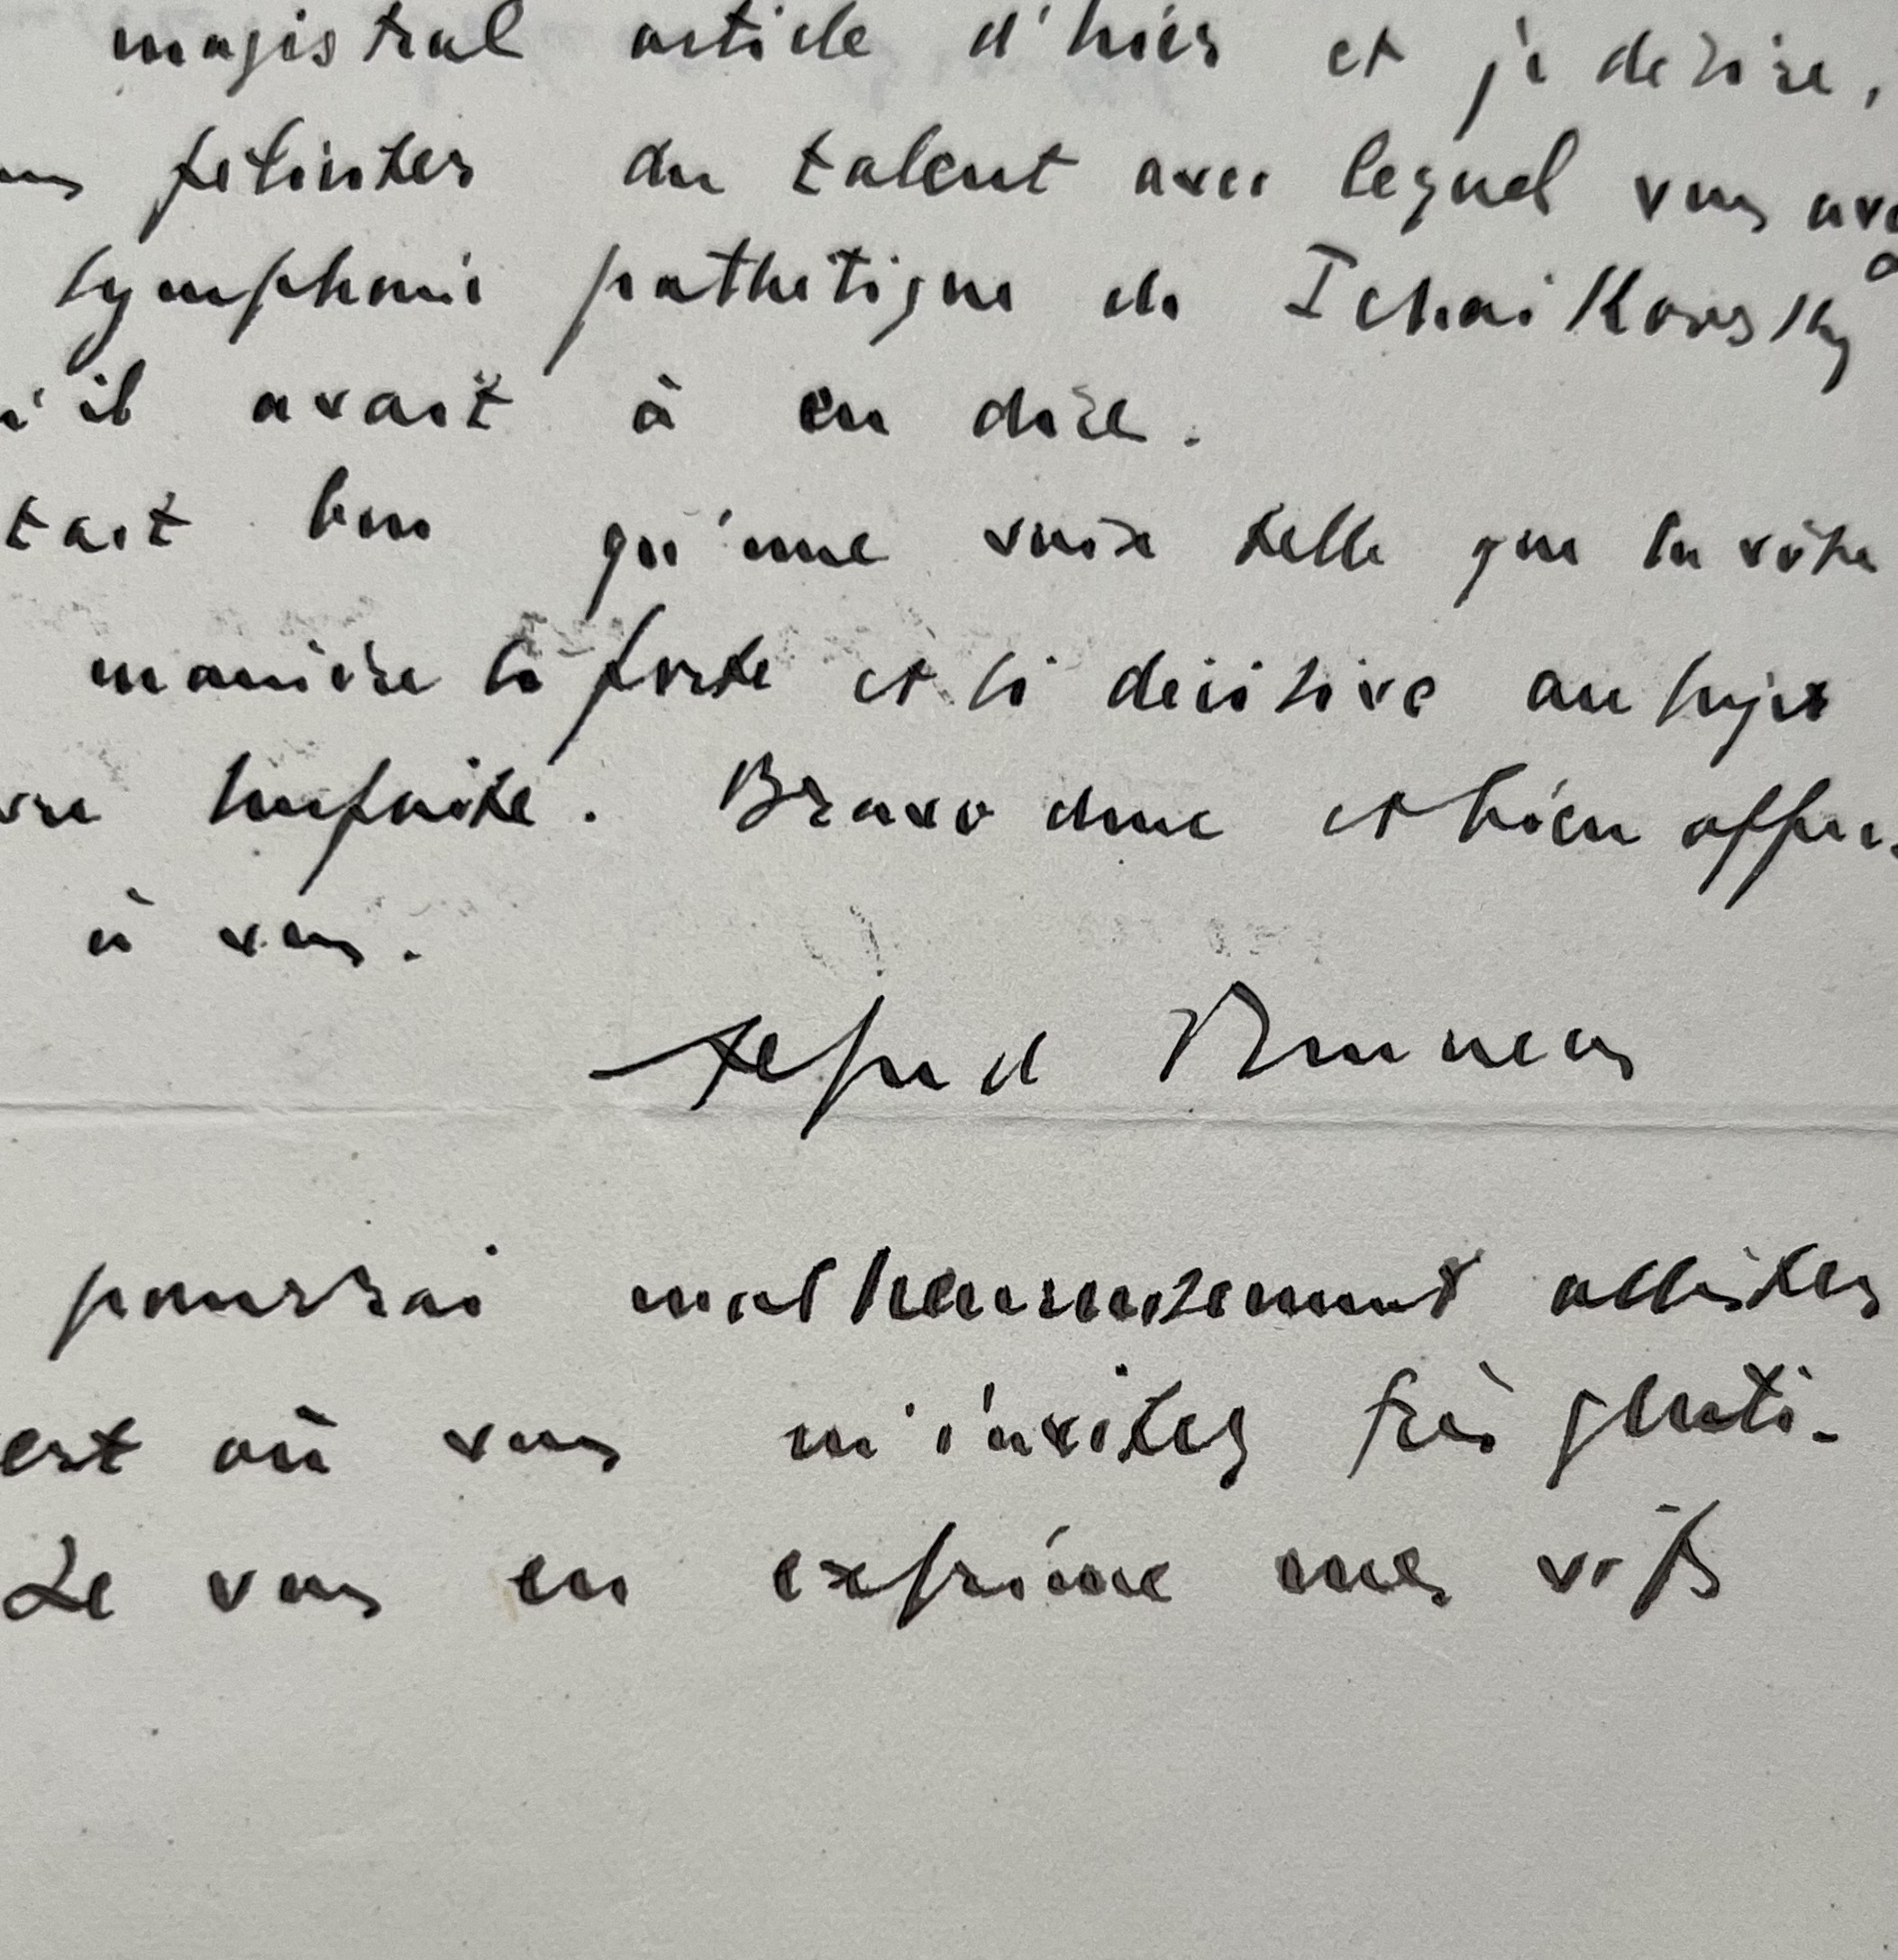 magistral article d'hier et je désire,
féliciter du talent avec lequel vous
symphonie pathétique de Tchaikowsky
il avait à en dire.
tait bon qu'une voix telle que la vôtre
manière si forte et si décisive au sujet
surfaite. Bravo donc et bien affec-
à vous.
Alfred Bruneau
pourrai malheureusement assister
où vous m'invitez très genti-
Je vous en exprime mes vifs